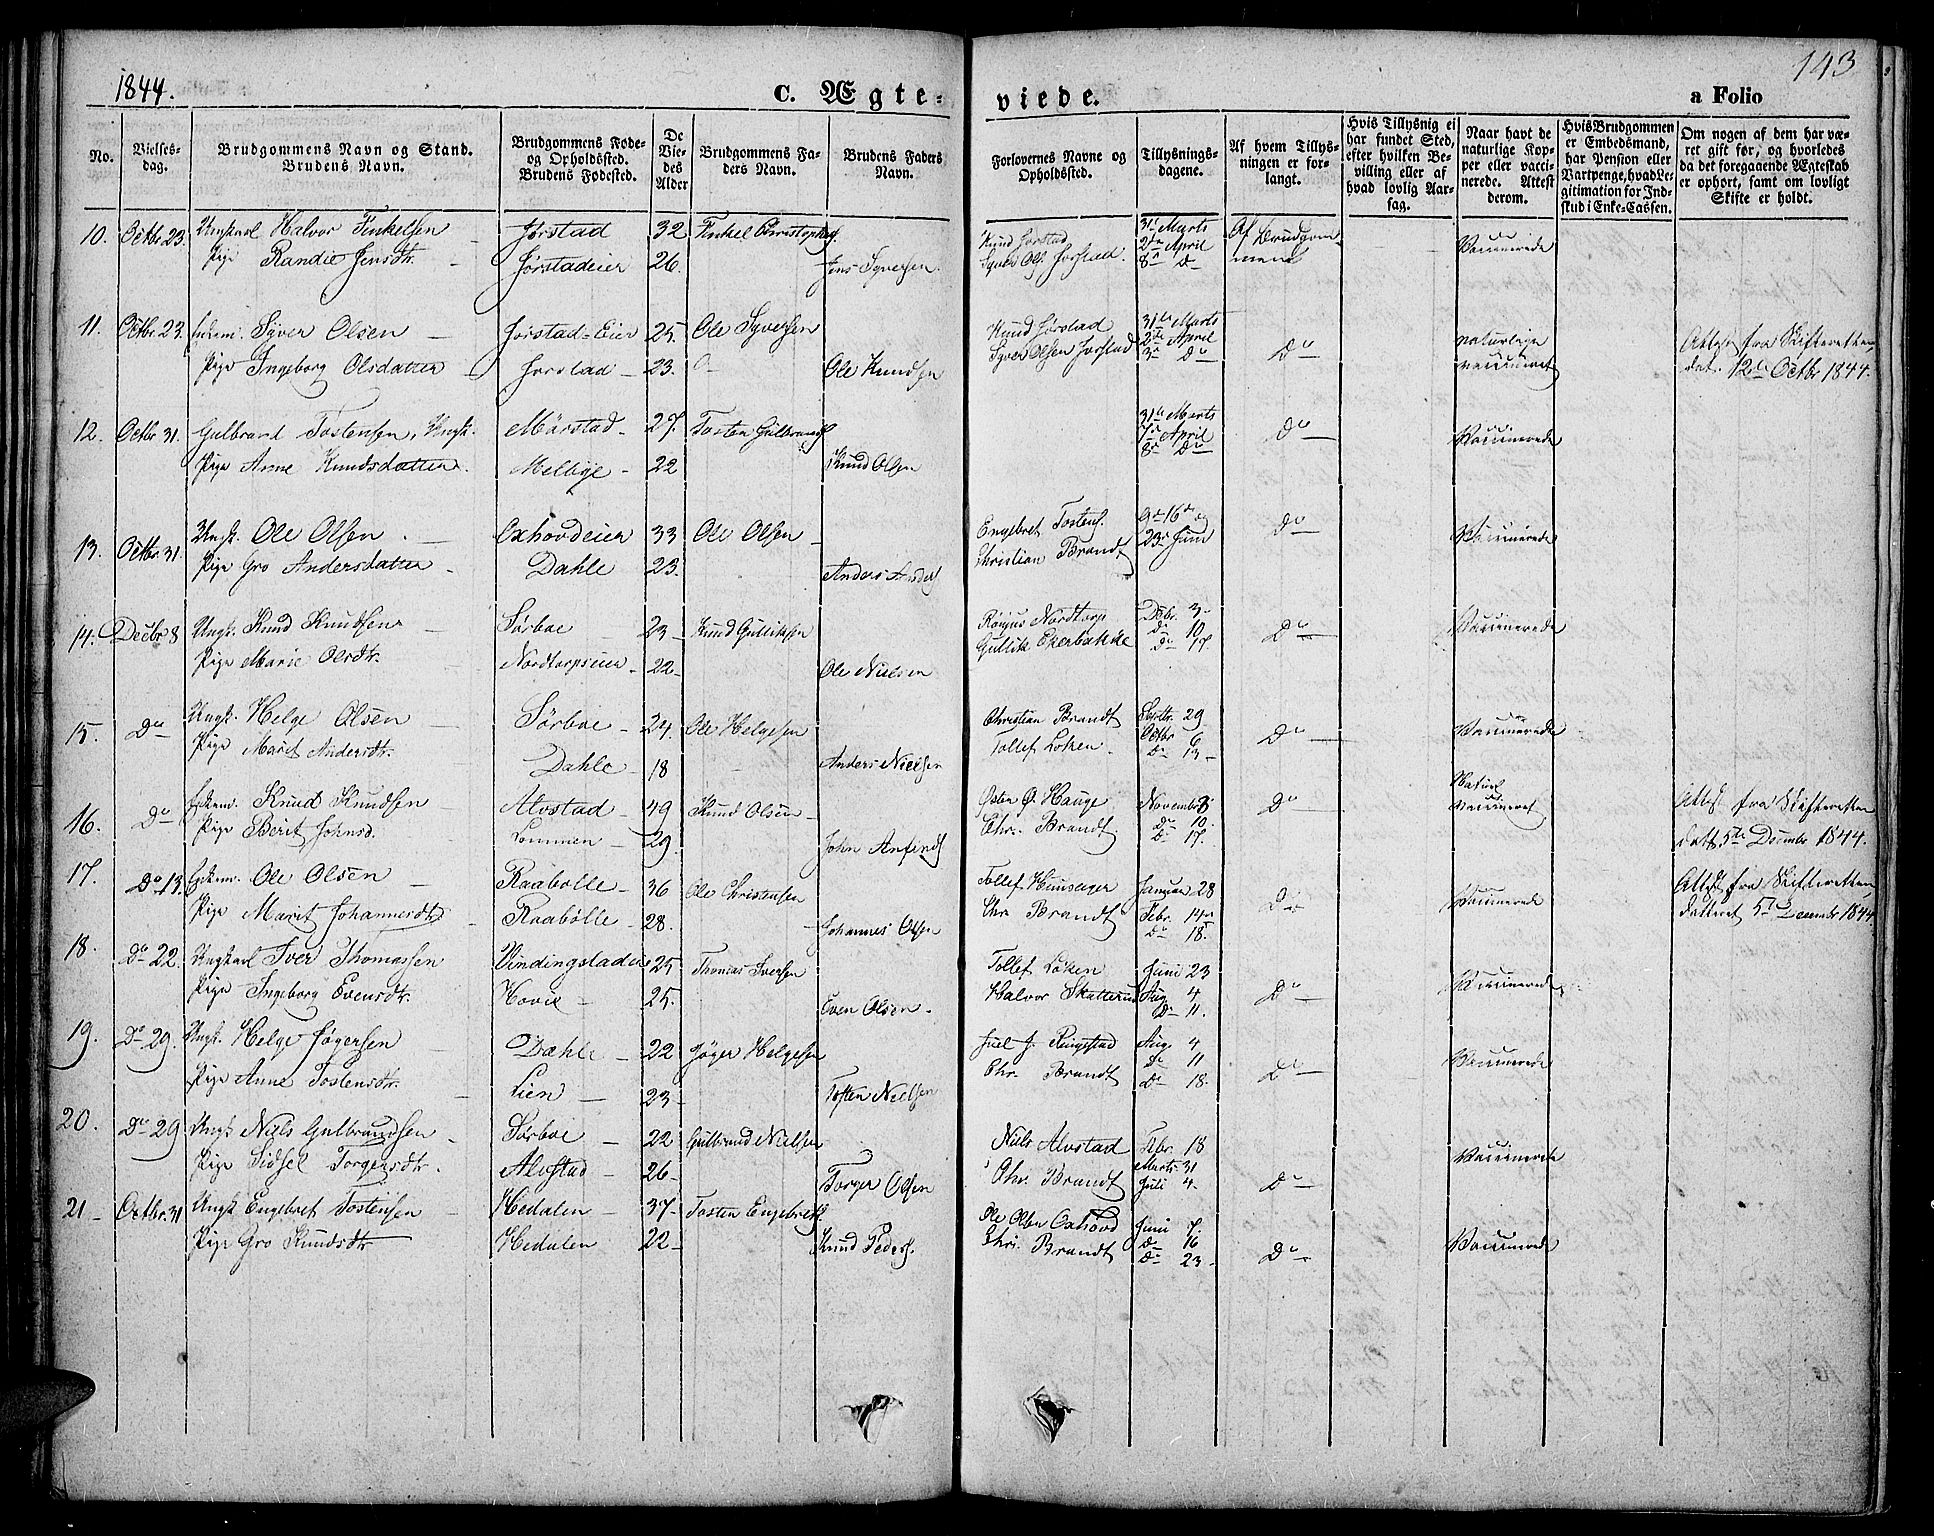 1844.
C. Ægte-
viede.
143
a Folio
No.
Vielses-
dag.
Brudgommens Navn og Stand.
Brudens Navn.
Brudgommens Føde-
og Opholdssted.
Brudens Fødested.
De
Vie-
des
Alder
Brudgommens Fa-
ders Navn.
Brudens Faders
Navn.
Forlovernes Navne og
Opholdssted.
Tillysnings-
dagene.
Af hvem Tillys-
ningen er for-
langt.
Hvis Tillysnig ei
har fundet Sted,
efter hvilken Be-
villing eller af
hvad lovlig Aar-
sag.
Naar havt de
naturlige Kop-
per eller vacci-
nerede. Attest
derom.
Hvis Brudgommen
er Embedsmand,
har Pension eller
Vartpenge, hvad Le-
gitimation for Ind-
skud i Enke-Cassen.
Om nogen af dem har væ-
ret gift før, og hvorledes
da det foregaaende Ægteskab
er ophørt, samt om lovligt
Skifte er holdt.
10. Octbr 23. Ungkarl Halvor Finkelsen Jørstad 32 Finkel Knud Jørstad 31 Marts Af Brudgom- Vaccinerede
Pige Randie Jensdtr. Jørstadeier 26. Jens Syversen. Syver Ols Jorstad. 2den April menet
8 D
11. Octbr. 23. Enkem. Syver Olsen Jorstad-Eier 25. Ole Syversen Knud Jørstad 31te Marts naturlige Attest fra Skifteretten,
Pige Ingeborg Olsdatter Jorstad 23. Ole Knudsen Syver Olsen Jorstad 2den April Do vaccineret dat. 12te Octbr 1844.
3 Do
12. Octbr 31. Gulbrand Tostensen, Ungk. Mørstad 27. Tosten Gulbrands 31te Marts Do Vaccinerede
Pige Anne Knudsdatter. Melbye 22 Knud Olsen 7de April
8 Do
13. Octbr. 31. Ungk. Ole Olsen Oxhovdeier 33 Ole Olsen Engebret Tostens. 9de 16de og Do Vaccinerede
Pige Gro Andersdatter Dahle 23. Anders Anders Christian Brandt 23 Juni
14. Decbr 8 Ungk. Knud Knudsen Sørboe 23 Knud Gulliksen Nordtorp 3 Vaccinerede
Pige Marie Olsdtr. Nordtorpseier 22. Ole Nielsen Gullik Ekerbakke Do 10. Do
Do 17.
15. Do Ungk. Helge Olsen Sørboe 24. Ole Helgesen Christian Brandt Septbr. 29 Do Vaccinerede
Pige Marit Andersdtr. Dahle 18 Anders Nielsen Tollef Loken Octbr 6
Do 13
16. Do Enkem. Knud Knudsen Alvstad 49 Knud Olsen Østen O. Hauge November 3 Do Naturl. Attest fra Skifteretten
Pige Berit Johnsd. Lommen 29. John Chr. Brandt Do 10. vaccineret datt 5te Decembr 1844.
Do 17.
17. Do 13. Enkem. Ole Olsen Raabølle 36 Ole Christensen Tollef Januar 28 Do Vaccinerede Attest fra Skifteretten,
Pige Marit Johannesdtr Raabølle 28. Johannes Olsen Chr Brandt Febr. 14 datteret 5t Decembr 1844
Do 18.
18. Do 22. Ungkarl Iver Thomassen 25 Thomas Iversen Tollef Loken Juni 23 Vaccinerede
Pige Ingeborg Evensdtr. Hovie 25. Even Olsen Halvor Aug. 4 Do
Do 11.
19. Do 29. Ungk. Helge Jøgersen Dahle 22 Jøger Helgesen Juel J. Ringstad Aug. 4 Vaccinerede
Pige Anne Tostensdtr. Lien 23 Tosten Nielsen Chr. Brandt Do 11 Do
Do 18.
20. Do 29 Ungk Niels Gulbrandsen Sørboe 22 Gulbrand Nielsen Niels Alvstad Febr. 18 Vaccinerede
Pige Sidsel Torgersdtr. Alvstad 26 Torger Olsen Chr. Brandt Marts 31 Do
Juli 4.
21 Octbr. 31 Ungk Engebret Tostensen Hedalen 37 Tosten Engebrets. Ole Olsen Oxhovd Juni 7. Vaccinerede
Pige Gro Knudsdtr Hedalen 22 Knud Peders. Chr. Brandt Do 16 Do
Do 23